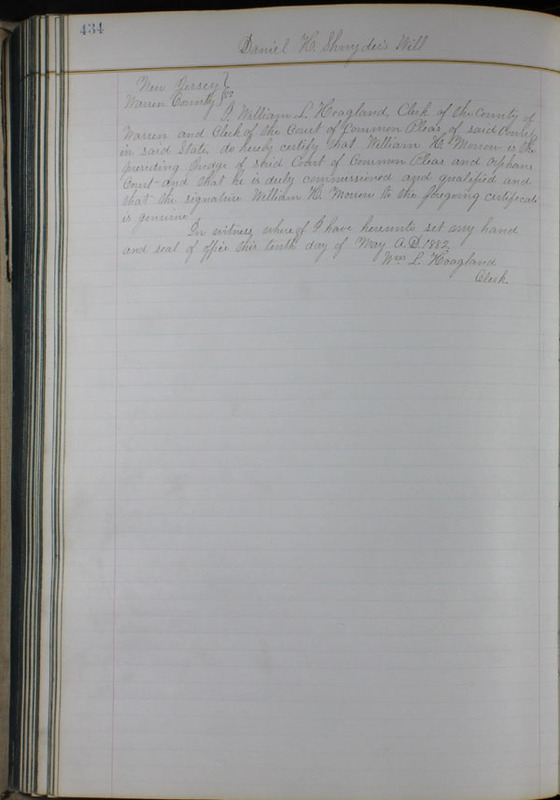 434
Daniel H. Shnyder's Will
New Jersey }
Warren County } ss
I, William L. Hoagland, Clerk of the County of
Warren and Clerk of the Court of Common Pleas, of said County
in said State, do hereby certify that William H. Morrow is the
presiding Judge of said Court of Common Pleas and Orphans
Court and that he is duly commissioned and qualified and
that the signature William H. Morrow to the foregoing certificate
is genuine
In witness whereof I have hereunto set my hand
and seal of office this tenth day of May A.D. 1882.
Wm L. Hoagland
Clerk.